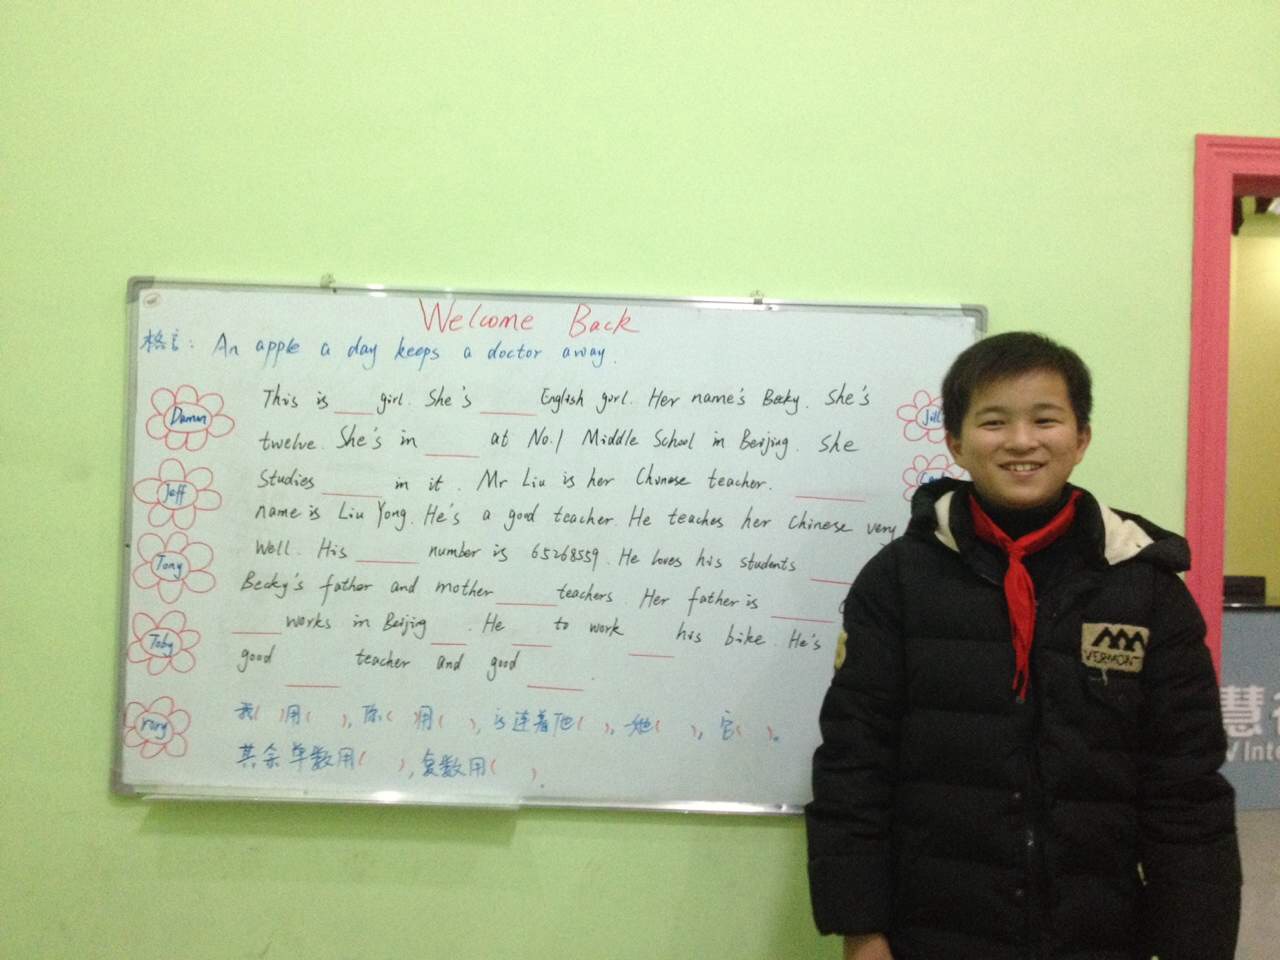 Welcome Back
格言: An apple a day keeps a doctor away.
This is ___ girl. She's ___ English girl. Her name's Becky. She's
twelve. She's in ___ at No.1 Middle School in Beijing. She
Studies ___ in it. Mr Liu is her Chinese teacher. ___
name is Liu Yong. He's a good teacher. He teaches her Chinese very
Well. His ___ number is 65268559. He loves his students ___
Becky's father and mother ___ teachers. Her father is ___
___ works in Beijing ___. He ___ to work ___ his bike. He's
good ___ teacher and good ___.
我( )用( ), 你( )用( ), 连着他( ), 她( ), 它( )。
其余单数用( ), 复数用( ).
Damon
Jeff
Tony
Toby
rory
Jill
VERMONT
慧
V Inte